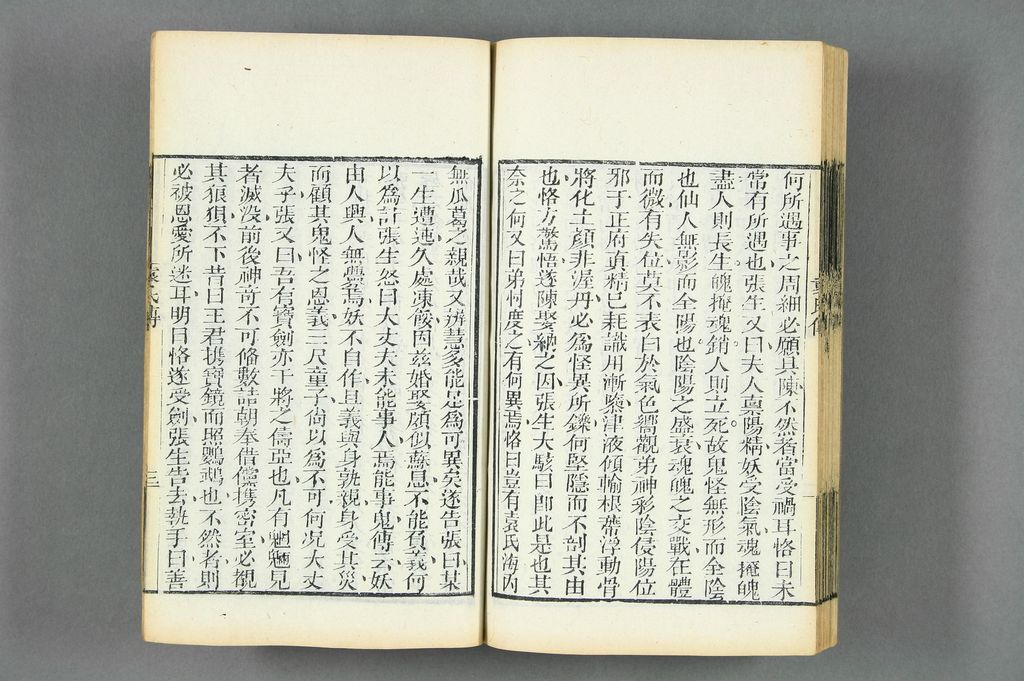 何所遇事之周細必願具陳不然者當受禍耳恪曰未
常有所遇也張生又曰夫人稟陽精妖受陰氣魂掩魄
盡人則長生魄掩魂銷人則立死故鬼怪無形而全陰
也仙人無影而全陽也陰陽之盛衰魂魄之交戰在體
而微有失位莫不表白於氣色嚮觀弟神彩陰侵陽位
邪干正府真精已耗識用漸隳津液傾輸根蔕浮動骨
將化土顏非渥丹必為怪異所鑠何堅隱而不剖其由
也恪方驚悟遂陳娶納之因張生大駭曰即此是也其
奈之何又曰弟忖度之有何異焉恪曰豈有袁氏海內
無瓜葛之親哉又辨慧多能足為可異矣遂告張曰某
一生遭迍久處凍餒因兹婚娶頗似蘇息不能負義何
以為計張生怒曰大丈夫未能事人焉能事鬼傳云妖
由人興人無釁焉妖不自作且義與身孰親身受其災
而顧其鬼怪之恩義三尺童子尚以為不可何况大丈
夫乎張又曰吾有寶劍亦干將之儔亞也凡有魍魎見
者滅没前後神奇不可備數詰朝奉借儻携密室必覩
其狼狽不下昔日王君携寶鏡而照鸚鵡也不然者則
必被恩愛所迷耳明日恪遂受劍張生告去執手曰善
袁氏傳
三